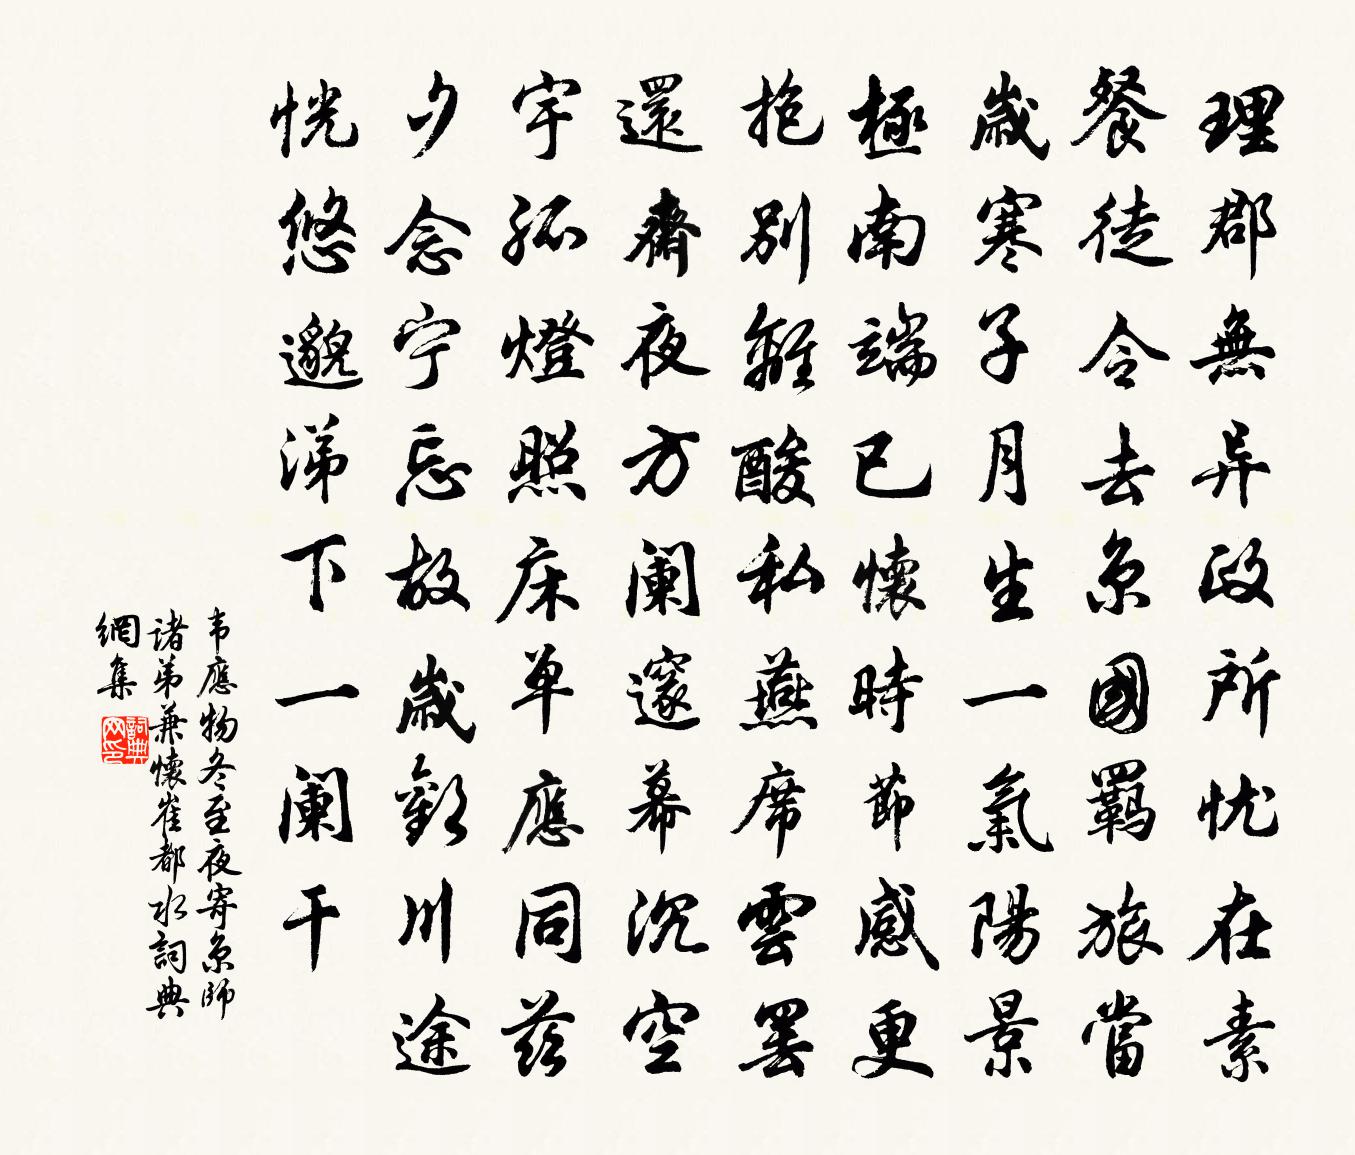 理郡無异政所忧在素
餐徒令去京國羁旅當
歲寒子月生一氣陽景
極南端已懷時節感更
抱別離酸私燕席雲罢
還齋夜方阑邃幕沉空
宇孤燈照床单應同兹
夕念宁忘故歲歡川途
恍悠邈涕下一阑干
韦應物冬至夜寄京師
诸弟兼懷崔都水詞典
網集
詞典網印